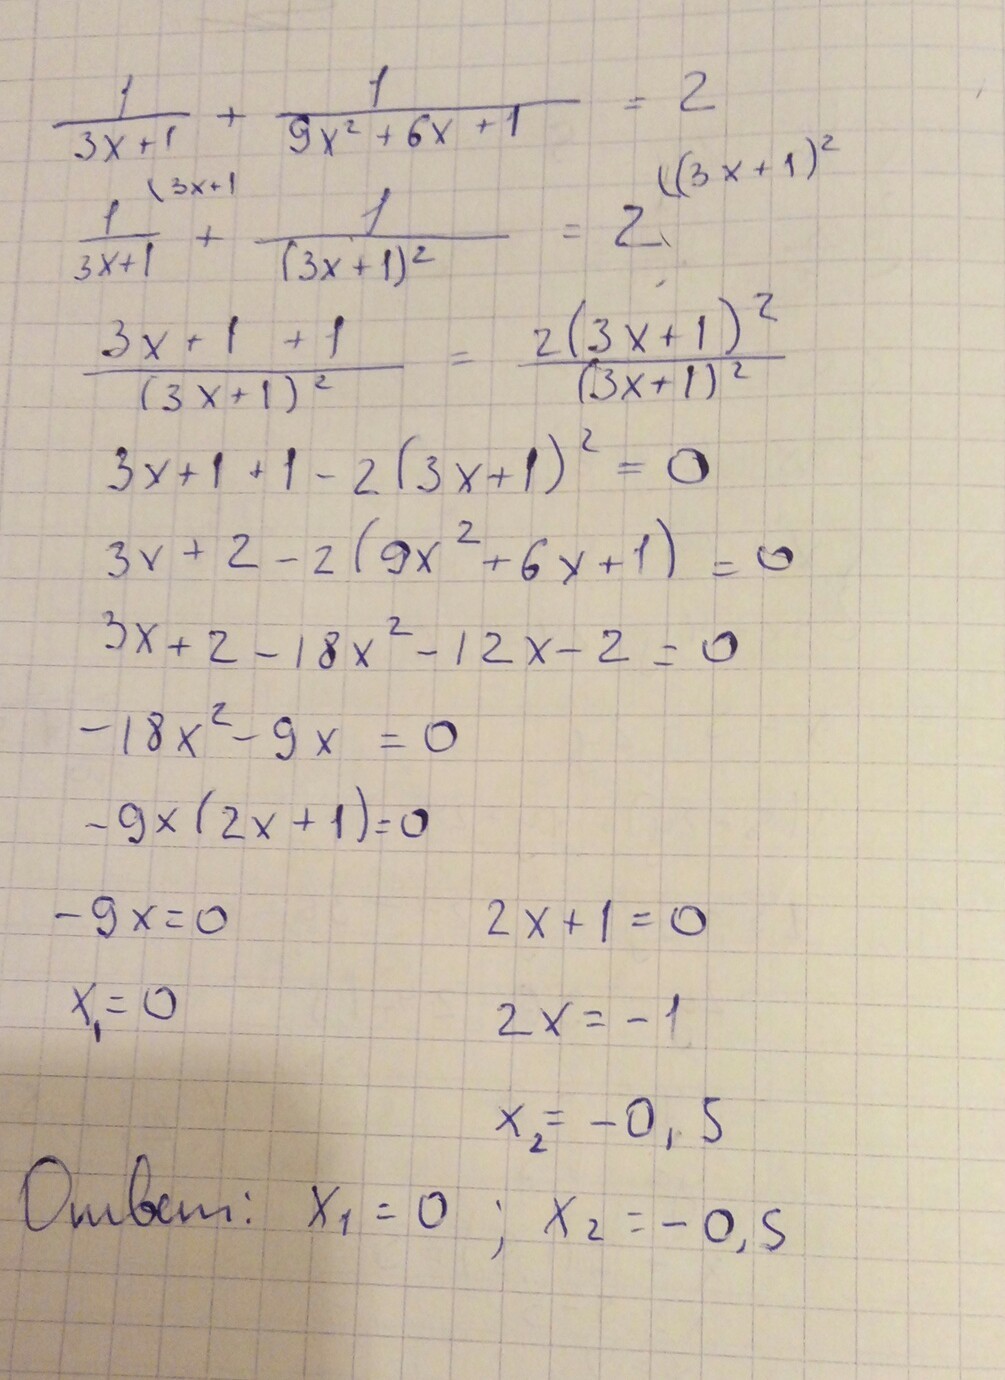 1/(3x+1) + 1/(9x² + 6x + 1) = 2
1/(3x+1) (3x+1 + 1/(3x+1)² = 2 ((3x+1)²
(3x + 1 + 1)/(3x+1)² = 2(3x+1)²/(3x+1)²
3x+1 +1 - 2(3x+1)² = 0
3x + 2 - 2(9x² + 6x + 1) = 0
3x + 2 - 18x² - 12x - 2 = 0
-18x² - 9x = 0
-9x(2x + 1) = 0
-9x = 0 2x + 1 = 0
x₁ = 0 2x = -1
x₂ = -0,5
Ответ: x₁ = 0 ; x₂ = -0,5